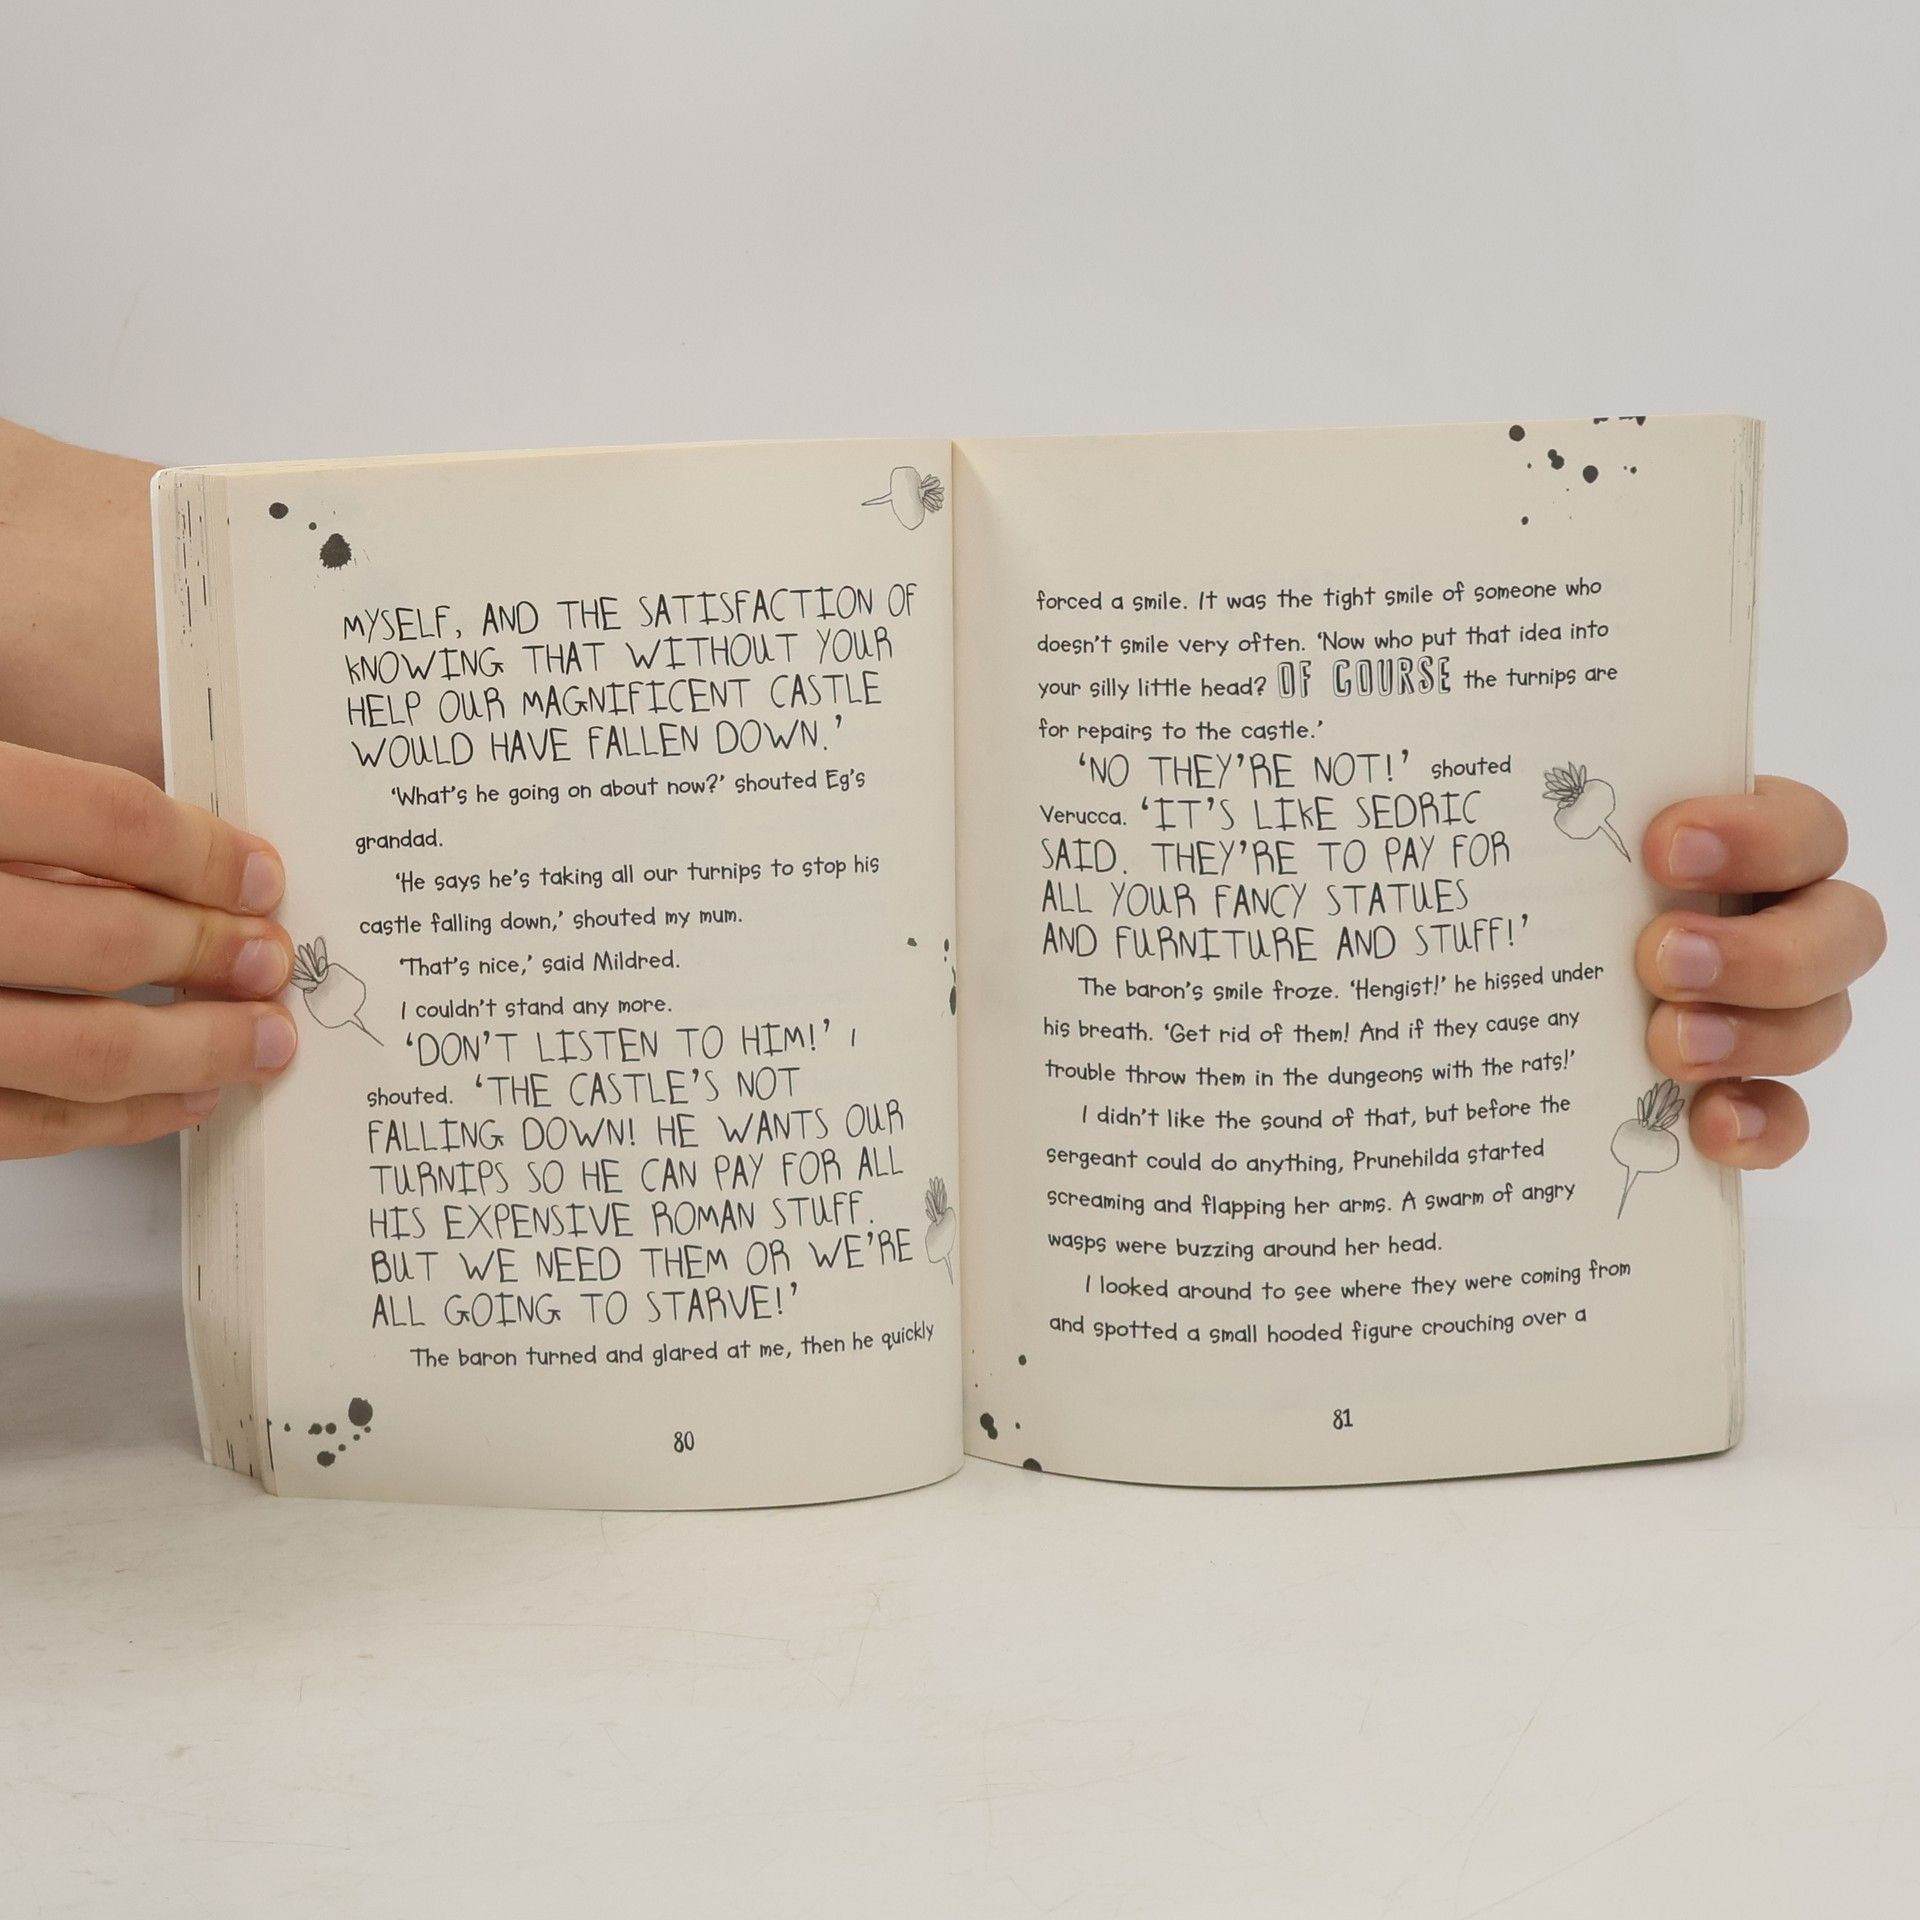 MYSELF, AND THE SATISFACTION OF
KNOWING THAT WITHOUT YOUR
HELP OUR MAGNIFICENT CASTLE
WOULD HAVE FALLEN DOWN.’
‘What’s he going on about now?’ shouted Eg’s
grandad.
‘He says he’s taking all our turnips to stop his
castle falling down,’ shouted my mum.
‘That’s nice,’ said Mildred.
I couldn’t stand any more.
‘DON’T LISTEN TO HIM!’ I
shouted. ‘THE CASTLE’S NOT
FALLING DOWN! HE WANTS OUR
TURNIPS SO HE CAN PAY FOR ALL
HIS EXPENSIVE ROMAN STUFF.
BUT WE NEED THEM OR WE’RE
ALL GOING TO STARVE!’
The baron turned and glared at me, then he quickly
80
forced a smile. It was the tight smile of someone who
doesn’t smile very often. ‘Now who put that idea into
your silly little head? OF COURSE the turnips are
for repairs to the castle.’
‘NO THEY’RE NOT!’ shouted
Verucca. ‘IT’S LIKE SEDRIC
SAID. THEY’RE TO PAY FOR
ALL YOUR FANCY STATUES
AND FURNITURE AND STUFF!’
The baron’s smile froze. ‘Hengist!’ he hissed under
his breath. ‘Get rid of them! And if they cause any
trouble throw them in the dungeons with the rats!’
I didn’t like the sound of that, but before the
sergeant could do anything, Prunehilda started
screaming and flapping her arms. A swarm of angry
wasps were buzzing around her head.
I looked around to see where they were coming from
and spotted a small hooded figure crouching over a
81